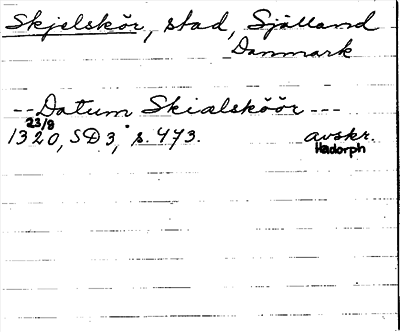 Skjelskör, stad, Själland
Danmark
-- Datum Skialsköör ---
23/8
1320, SD 3, s. 473. avskr.
Hadorph